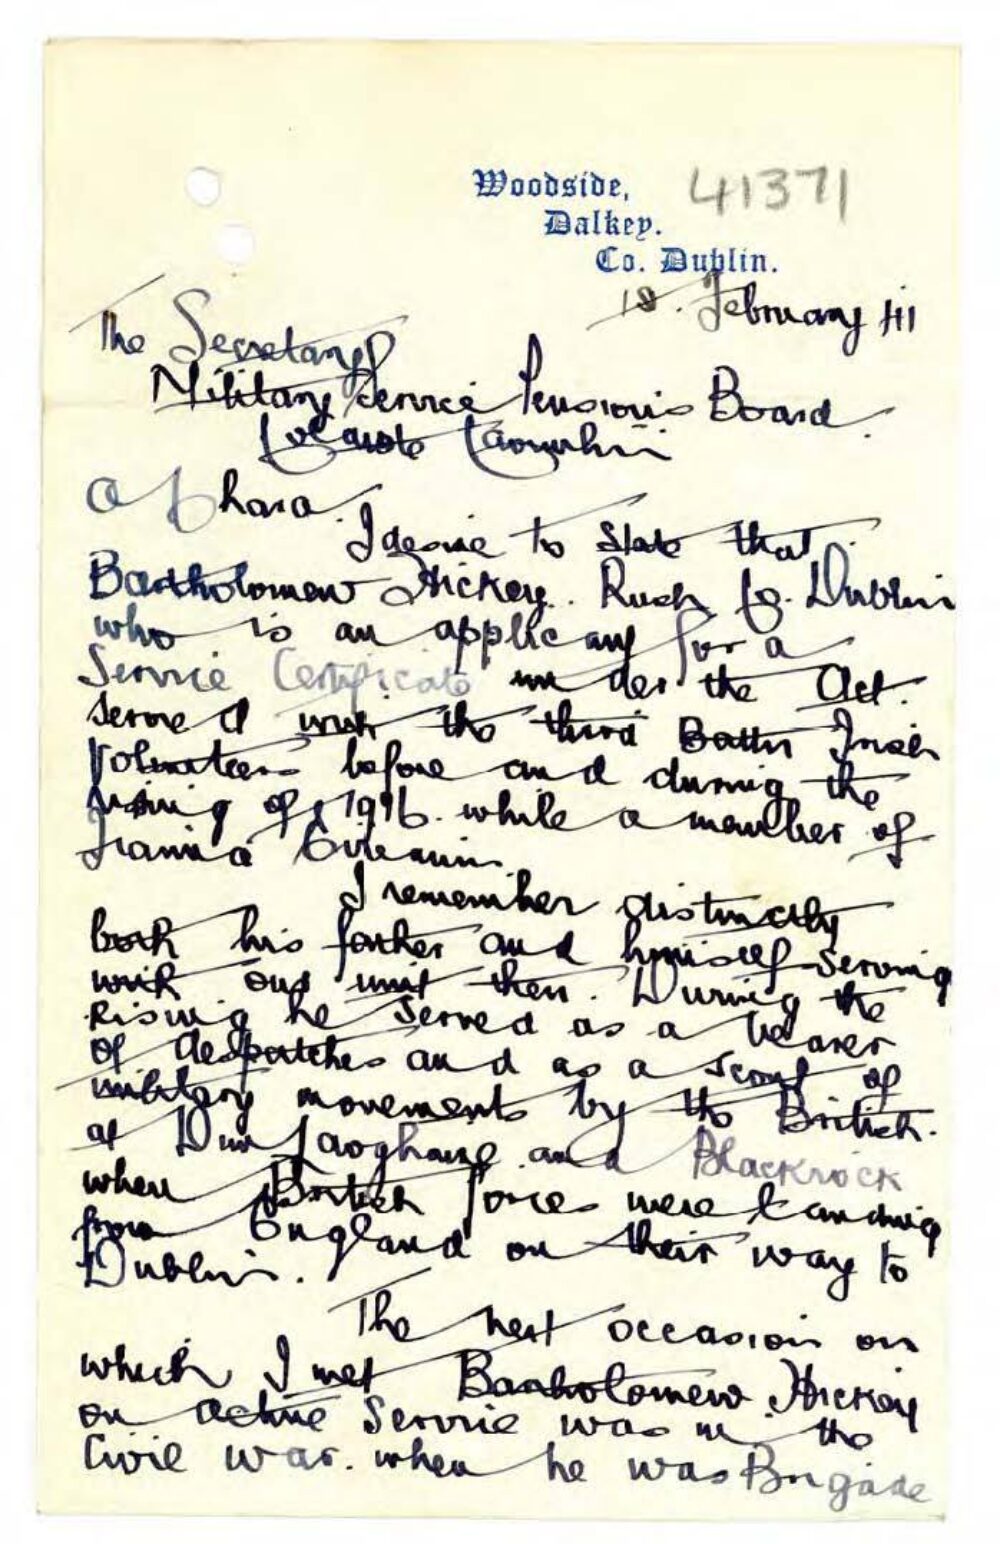 Woodside,
41371
Dalkey.
Co. Dublin.
18. February 41
The Secretary
Military Service Pensions Board.
A Chara.
I desire to state that
Bartholomew Hickey. Rush Co. Dublin
who is an applicant for a
Service Certificate under the Act.
served with the third Battn Irish
Volunteers before and during the
rising of 1916. while a member of
Fianna Eireann.
I remember distinctly
both his father and himself serving
with our unit then. During the
Rising he served as a bearer
of despatches and as a scout of
military movements by the British.
at Dun Laoghaire and Blackrock
when British forces were landing
from England on their way to
Dublin.
The next occasion on
which I met Bartholomew Hickey
on active Service was in the
Civil War. when he was Brigade